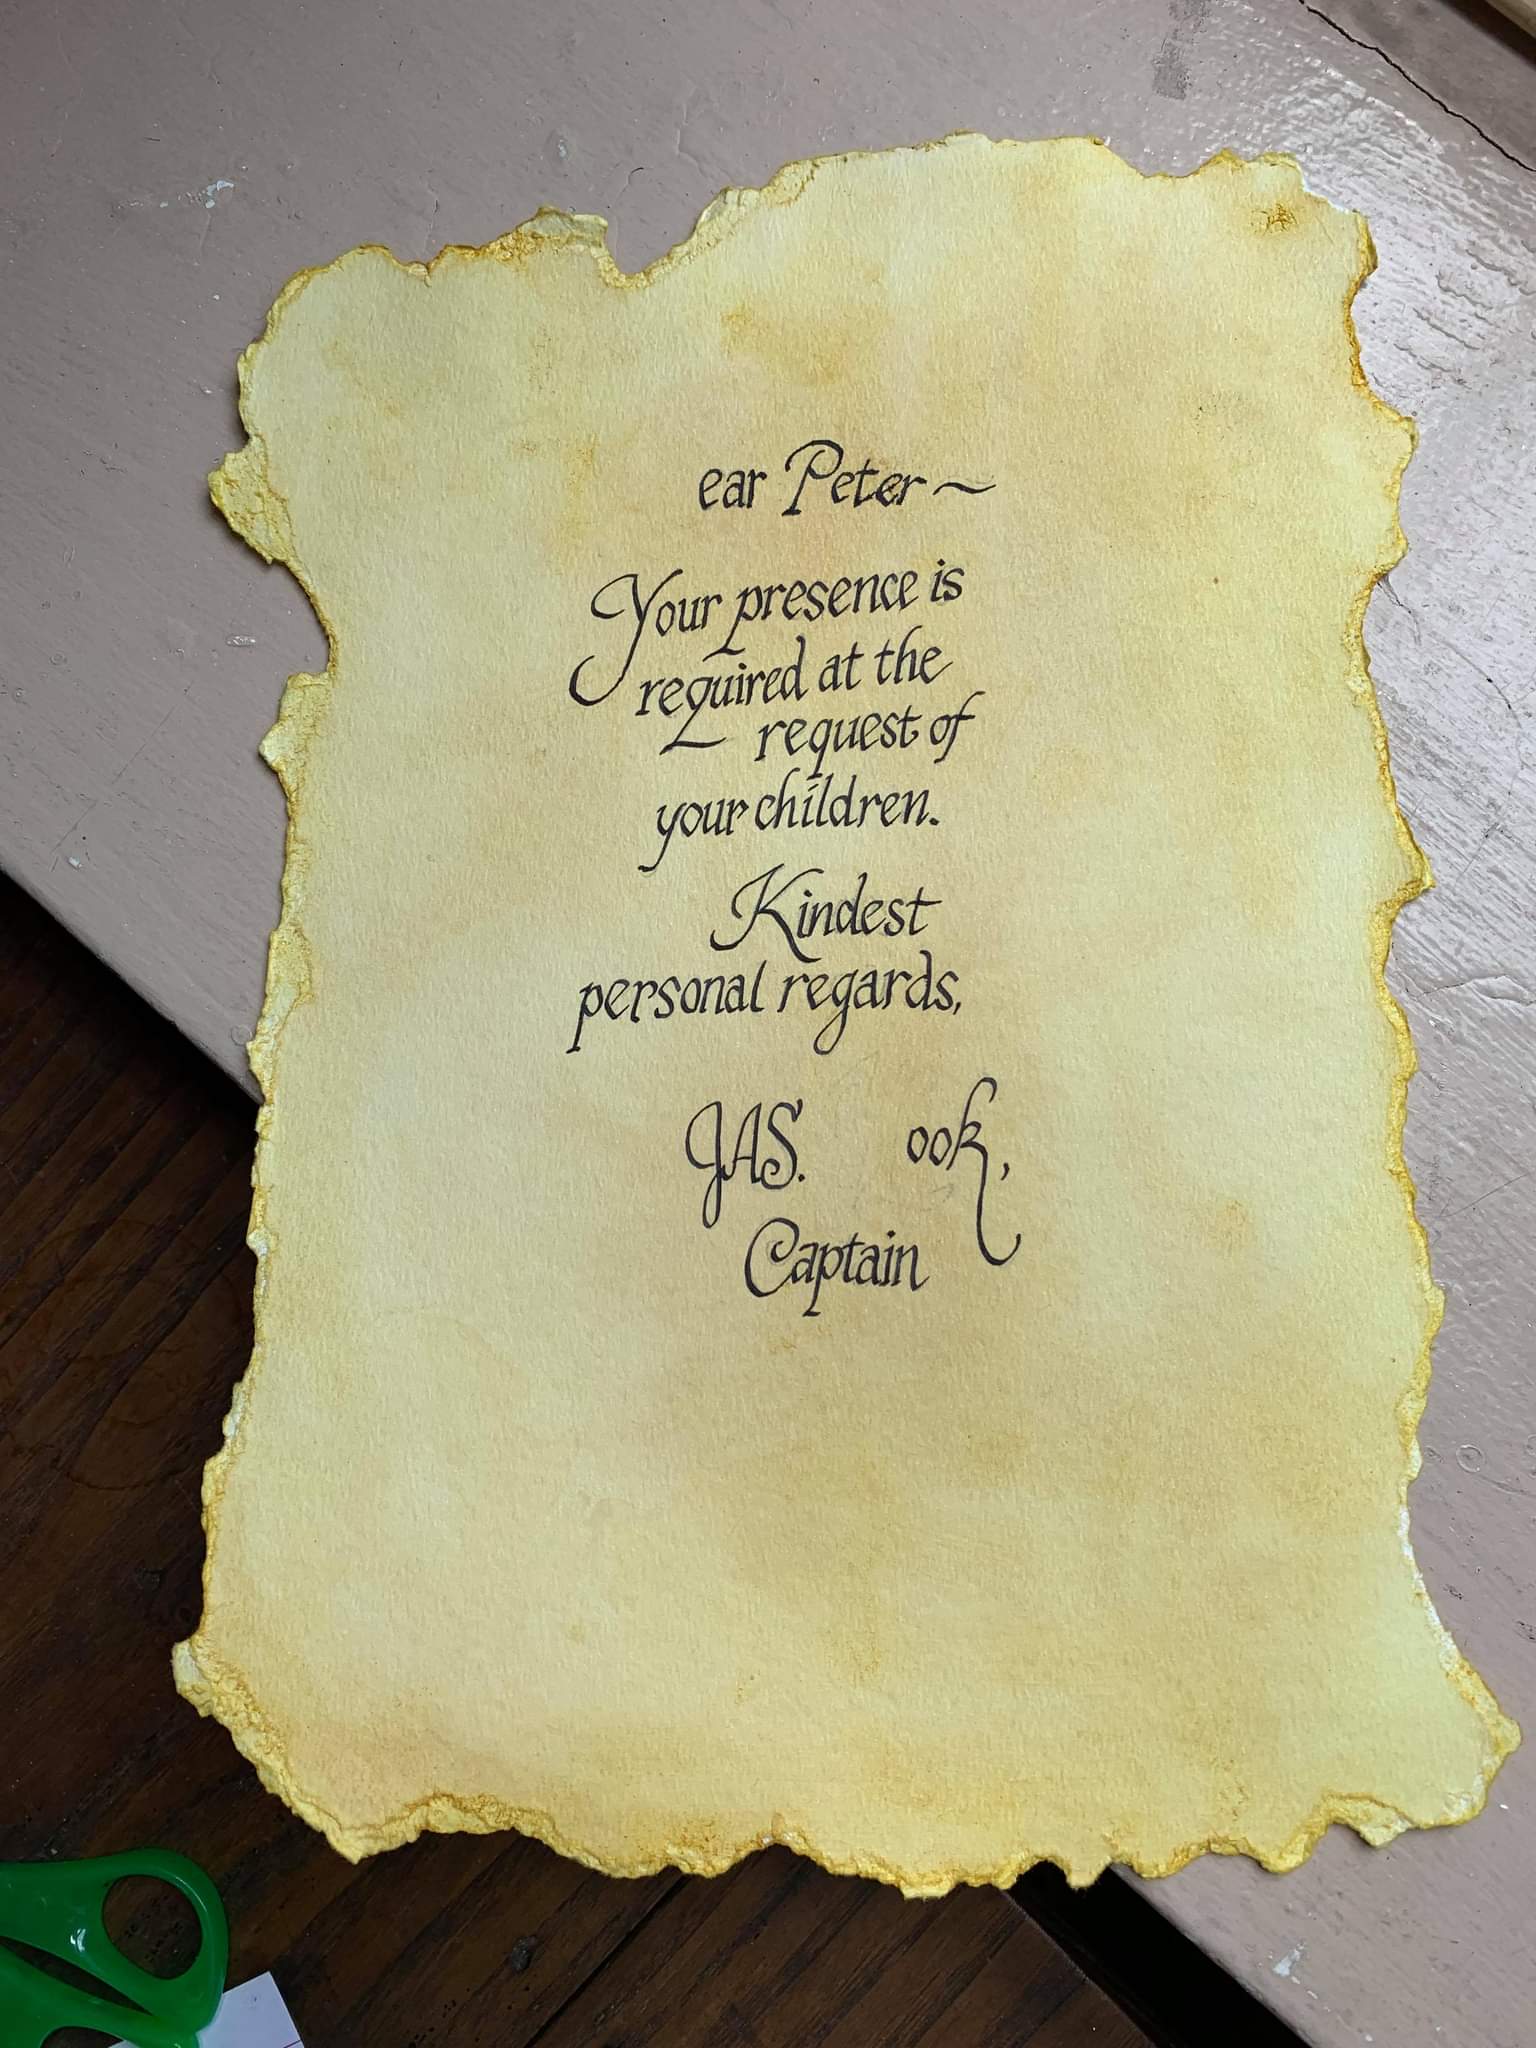 ear Peter~
Your presence is
required at the
request of
your children.
Kindest
personal regards,
JAS. ook,
Captain